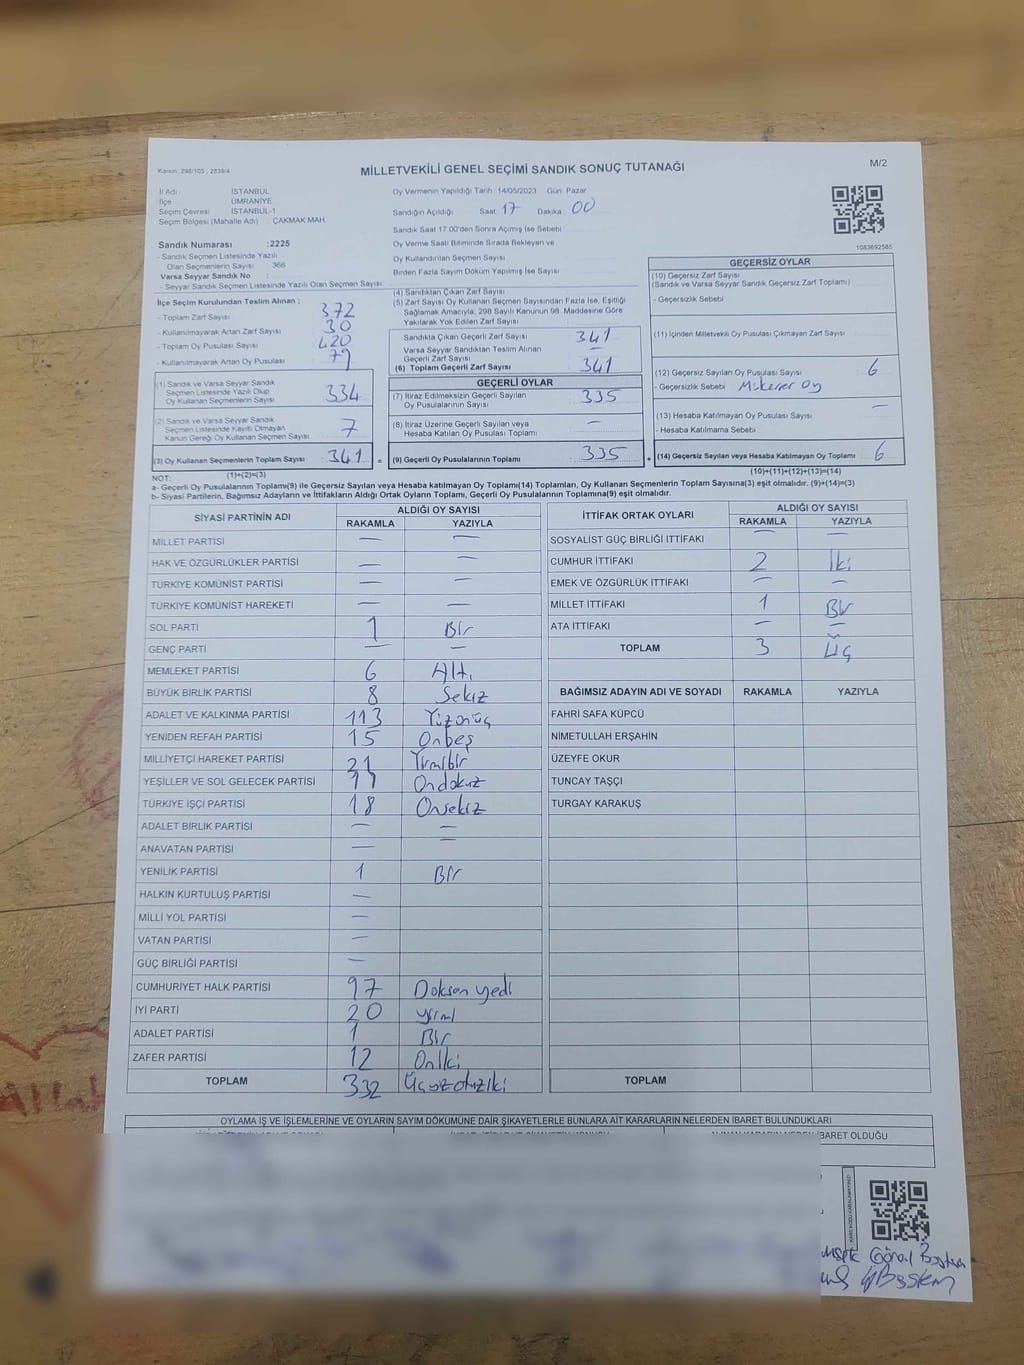 Kanun, 298/105 , 2839/4
MİLLETVEKİLİ GENEL SEÇİMİ SANDIK SONUÇ TUTANAĞI
M/2
İl Adı İSTANBUL
İlçe ÜMRANİYE
Seçim Çevresi İSTANBUL-1
Seçim Bölgesi (Mahalle Adı) ÇAKMAK MAH.
Oy Vermenin Yapıldığı Tarih :14/05/2023 Gün: Pazar
Sandığın Açıldığı Saat: 17 Dakika: 00
Sandık Saat 17:00'den Sonra Açılmış İse Sebebi
Oy Verme Saati Bitiminde Sırada Bekleyen ve
Oy Kullandırılan Seçmen Sayısı
Birden Fazla Sayım Döküm Yapılmış İse Sayısı
1083692585
Sandık Numarası :2225
- Sandık Seçmen Listesinde Yazılı
Olan Seçmenlerin Sayısı 366
Varsa Seyyar Sandık No :
- Seyyar Sandık Seçmen Listesinde Yazılı Olan Seçmen Sayısı:
İlçe Seçim Kurulundan Teslim Alınan ;
- Toplam Zarf Sayısı 372
- Kullanılmayarak Artan Zarf Sayısı 30
- Toplam Oy Pusulası Sayısı 420
- Kullanılmayarak Artan Oy Pusulası 79
(1) Sandık ve Varsa Seyyar Sandık
Seçmen Listesinde Yazılı Olup
Oy Kullanan Seçmenlerin Sayısı 334
(2) Sandık ve Varsa Seyyar Sandık
Seçmen Listesinde Kayıtlı Olmayan
Kanun Gereği Oy Kullanan Seçmen Sayısı 7
(3) Oy Kullanan Seçmenlerin Toplam Sayısı : 341 =
(1)+(2)=(3)
(4) Sandıktan Çıkan Zarf Sayısı
(5) Zarf Sayısı Oy Kullanan Seçmen Sayısından Fazla İse, Eşitliği
Sağlamak Amacıyla, 298 Sayılı Kanunun 98. Maddesine Göre
Yakılarak Yok Edilen Zarf Sayısı
Sandıkta Çıkan Geçerli Zarf Sayısı 341
Varsa Seyyar Sandıktan Teslim Alınan
Geçerli Zarf Sayısı —
(6) Toplam Geçerli Zarf Sayısı 341
GEÇERLİ OYLAR
(7) İtiraz Edilmeksizin Geçerli Sayılan
Oy Pusulalarının Sayısı 335
(8) İtiraz Üzerine Geçerli Sayılan veya
Hesaba Katılan Oy Pusulası Toplamı —
(9) Geçerli Oy Pusulalarının Toplamı : 335 +
GEÇERSİZ OYLAR
(10) Geçersiz Zarf Sayısı
(Sandık ve Varsa Seyyar Sandık Geçersiz Zarf Toplamı)
- Geçersizlik Sebebi
(11) İçinden Milletvekili Oy Pusulası Çıkmayan Zarf Sayısı
(12) Geçersiz Sayılan Oy Pusulası Sayısı 6
- Geçersizlik Sebebi : Mükerrer Oy
(13) Hesaba Katılmayan Oy Pusulası Sayısı —
- Hesaba Katılmama Sebebi
(14) Geçersiz Sayılan veya Hesaba Katılmayan Oy Toplamı : 6
(10)+(11)+(12)+(13)=(14)
NOT:
a- Geçerli Oy Pusulalarının Toplamı(9) ile Geçersiz Sayılan veya Hesaba katılmayan Oy Toplamı(14) Toplamları, Oy Kullanan Seçmenlerin Toplam Sayısına(3) eşit olmalıdır. (9)+(14)=(3)
b- Siyasi Partilerin, Bağımsız Adayların ve İttifakların Aldığı Ortak Oyların Toplamı, Geçerli Oy Pusulalarının Toplamına(9) eşit olmalıdır.
SİYASİ PARTİNİN ADI
ALDIĞI OY SAYISI
RAKAMLA YAZIYLA
MİLLET PARTİSİ — —
HAK VE ÖZGÜRLÜKLER PARTİSİ — —
TÜRKİYE KOMÜNİST PARTİSİ — —
TÜRKİYE KOMÜNİST HAREKETİ — —
SOL PARTİ 1 Bir
GENÇ PARTİ — —
MEMLEKET PARTİSİ 6 Altı
BÜYÜK BİRLİK PARTİSİ 8 Sekiz
ADALET VE KALKINMA PARTİSİ 113 Yüzonüç
YENİDEN REFAH PARTİSİ 15 Onbeş
MİLLİYETÇİ HAREKET PARTİSİ 21 Yirmibir
YEŞİLLER VE SOL GELECEK PARTİSİ 19 Ondokuz
TÜRKİYE İŞÇİ PARTİSİ 18 Onsekiz
ADALET BİRLİK PARTİSİ — —
ANAVATAN PARTİSİ — —
YENİLİK PARTİSİ 1 Bir
HALKIN KURTULUŞ PARTİSİ —
MİLLİ YOL PARTİSİ —
VATAN PARTİSİ —
GÜÇ BİRLİĞİ PARTİSİ —
CUMHURİYET HALK PARTİSİ 97 Doksan yedi
İYİ PARTİ 20 yirmi
ADALET PARTİSİ 1 Bir
ZAFER PARTİSİ 12 Oniki
TOPLAM 332 Üçyüzotuziki
İTTİFAK ORTAK OYLARI
ALDIĞI OY SAYISI
RAKAMLA YAZIYLA
SOSYALİST GÜÇ BİRLİĞİ İTTİFAKI — —
CUMHUR İTTİFAKI 2 İki
EMEK VE ÖZGÜRLÜK İTTİFAKI — —
MİLLET İTTİFAKI 1 Bir
ATA İTTİFAKI — —
TOPLAM 3 Üç
BAĞIMSIZ ADAYIN ADI VE SOYADI RAKAMLA YAZIYLA
FAHRİ SAFA KÜPCÜ
NİMETULLAH ERŞAHİN
ÜZEYFE OKUR
TUNCAY TAŞÇI
TURGAY KARAKUŞ
TOPLAM
OYLAMA İŞ VE İŞLEMLERİNE VE OYLARIN SAYIM DÖKÜMÜNE DAİR ŞİKAYETLERLE BUNLARA AİT KARARLARIN NELERDEN İBARET BULUNDUKLARI
İBARET OLDUĞU